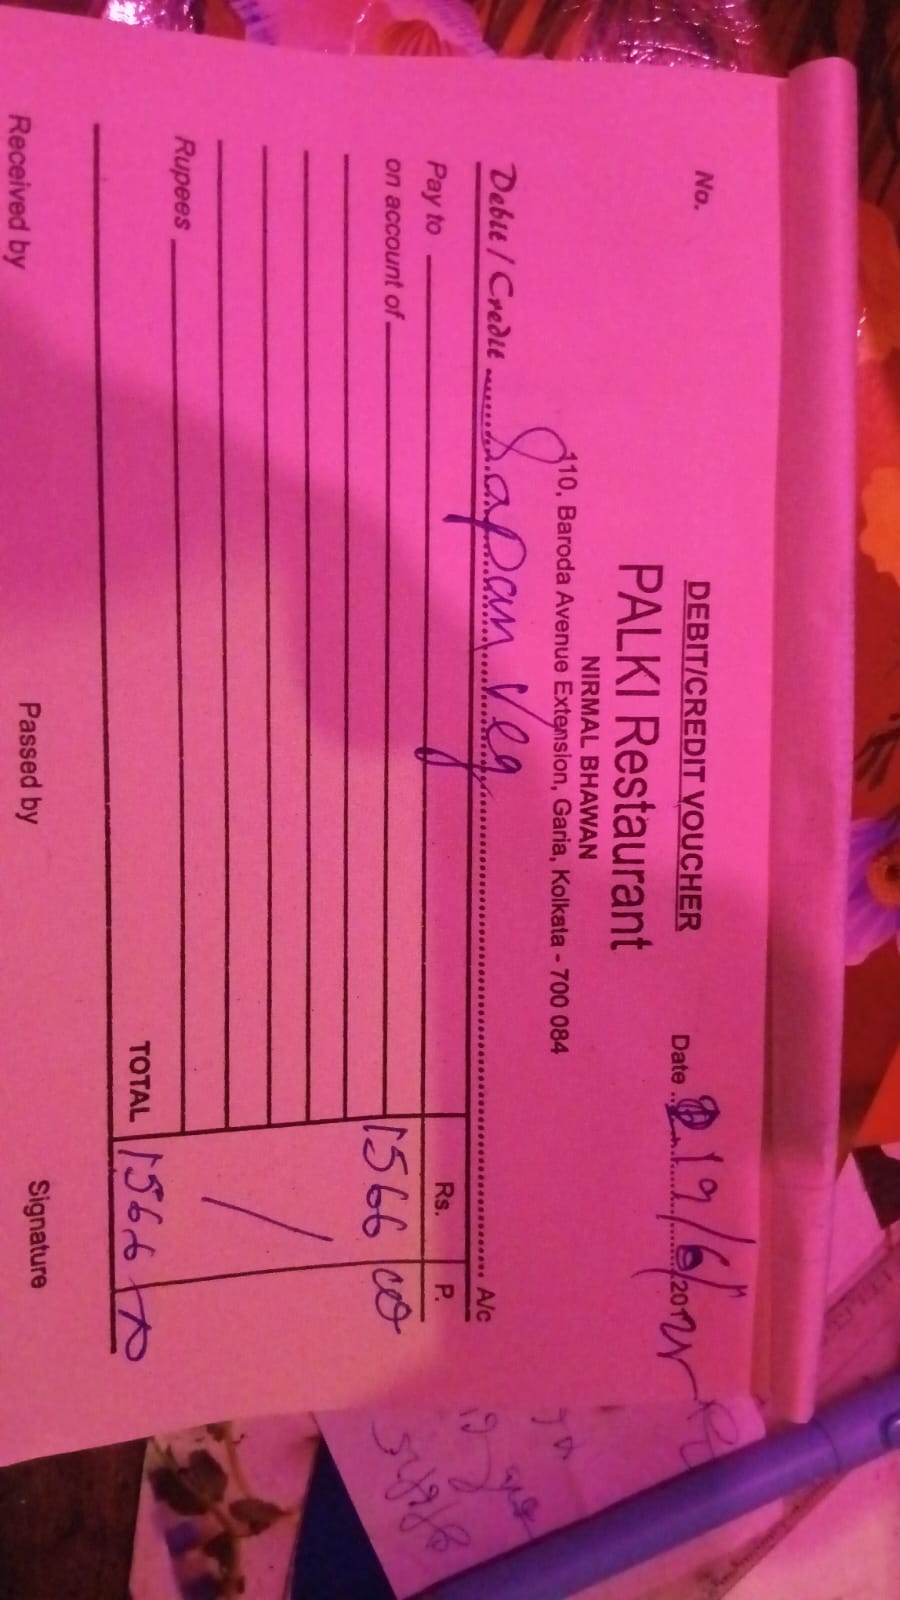 DEBIT/CREDIT VOUCHER
No.
Date 19/6/
PALKI Restaurant
NIRMAL BHAWAN
110, Baroda Avenue Extension, Garia, Kolkata - 700 084
Debit / Credit Sapan Veg A/c
Pay to Rs. P.
on account of 1566 00
Rupees
TOTAL 1566
Received by Passed by Signature